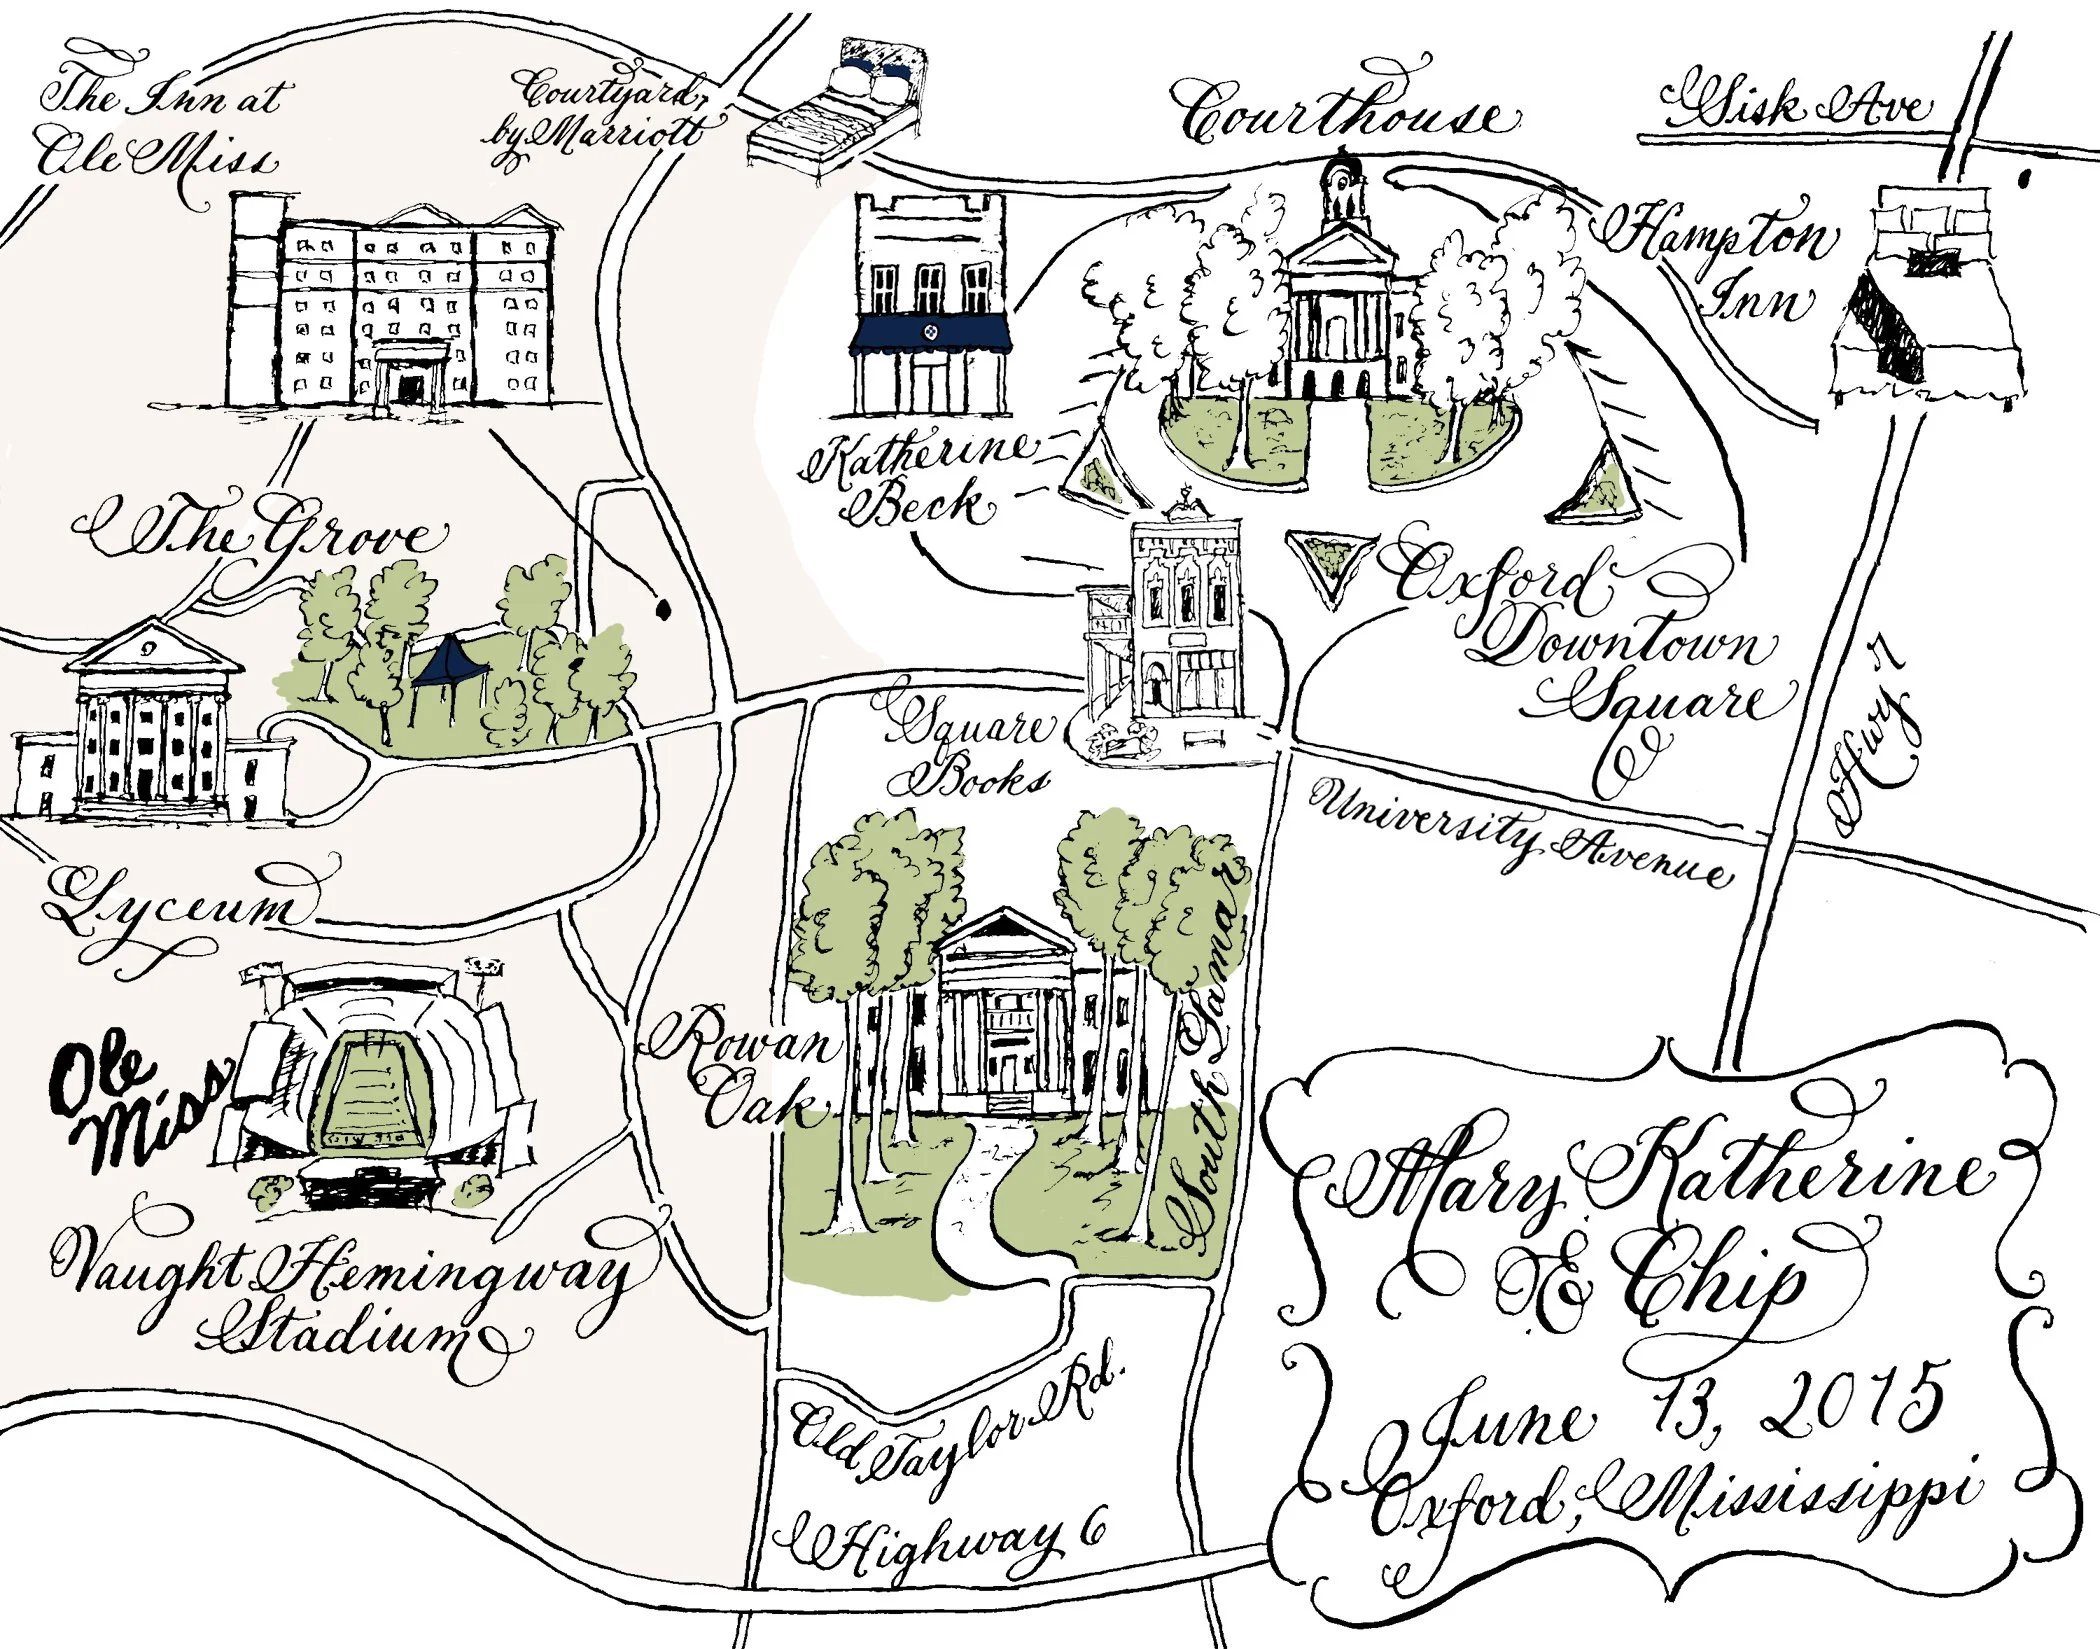 The Inn at
Ole Miss
Courtyard
by Marriott
Courthouse
Sisk Ave
Hampton
Inn
Katherine
Beck
The Grove
Oxford
Downtown
Square
Hwy 7
Square
Books
University Avenue
Lyceum
South Lamar
Rowan
Oak
Ole
Miss
Vaught Hemingway
Stadium
Old Taylor Rd.
Highway 6
Mary Katherine
& Chip
June 13, 2015
Oxford, Mississippi